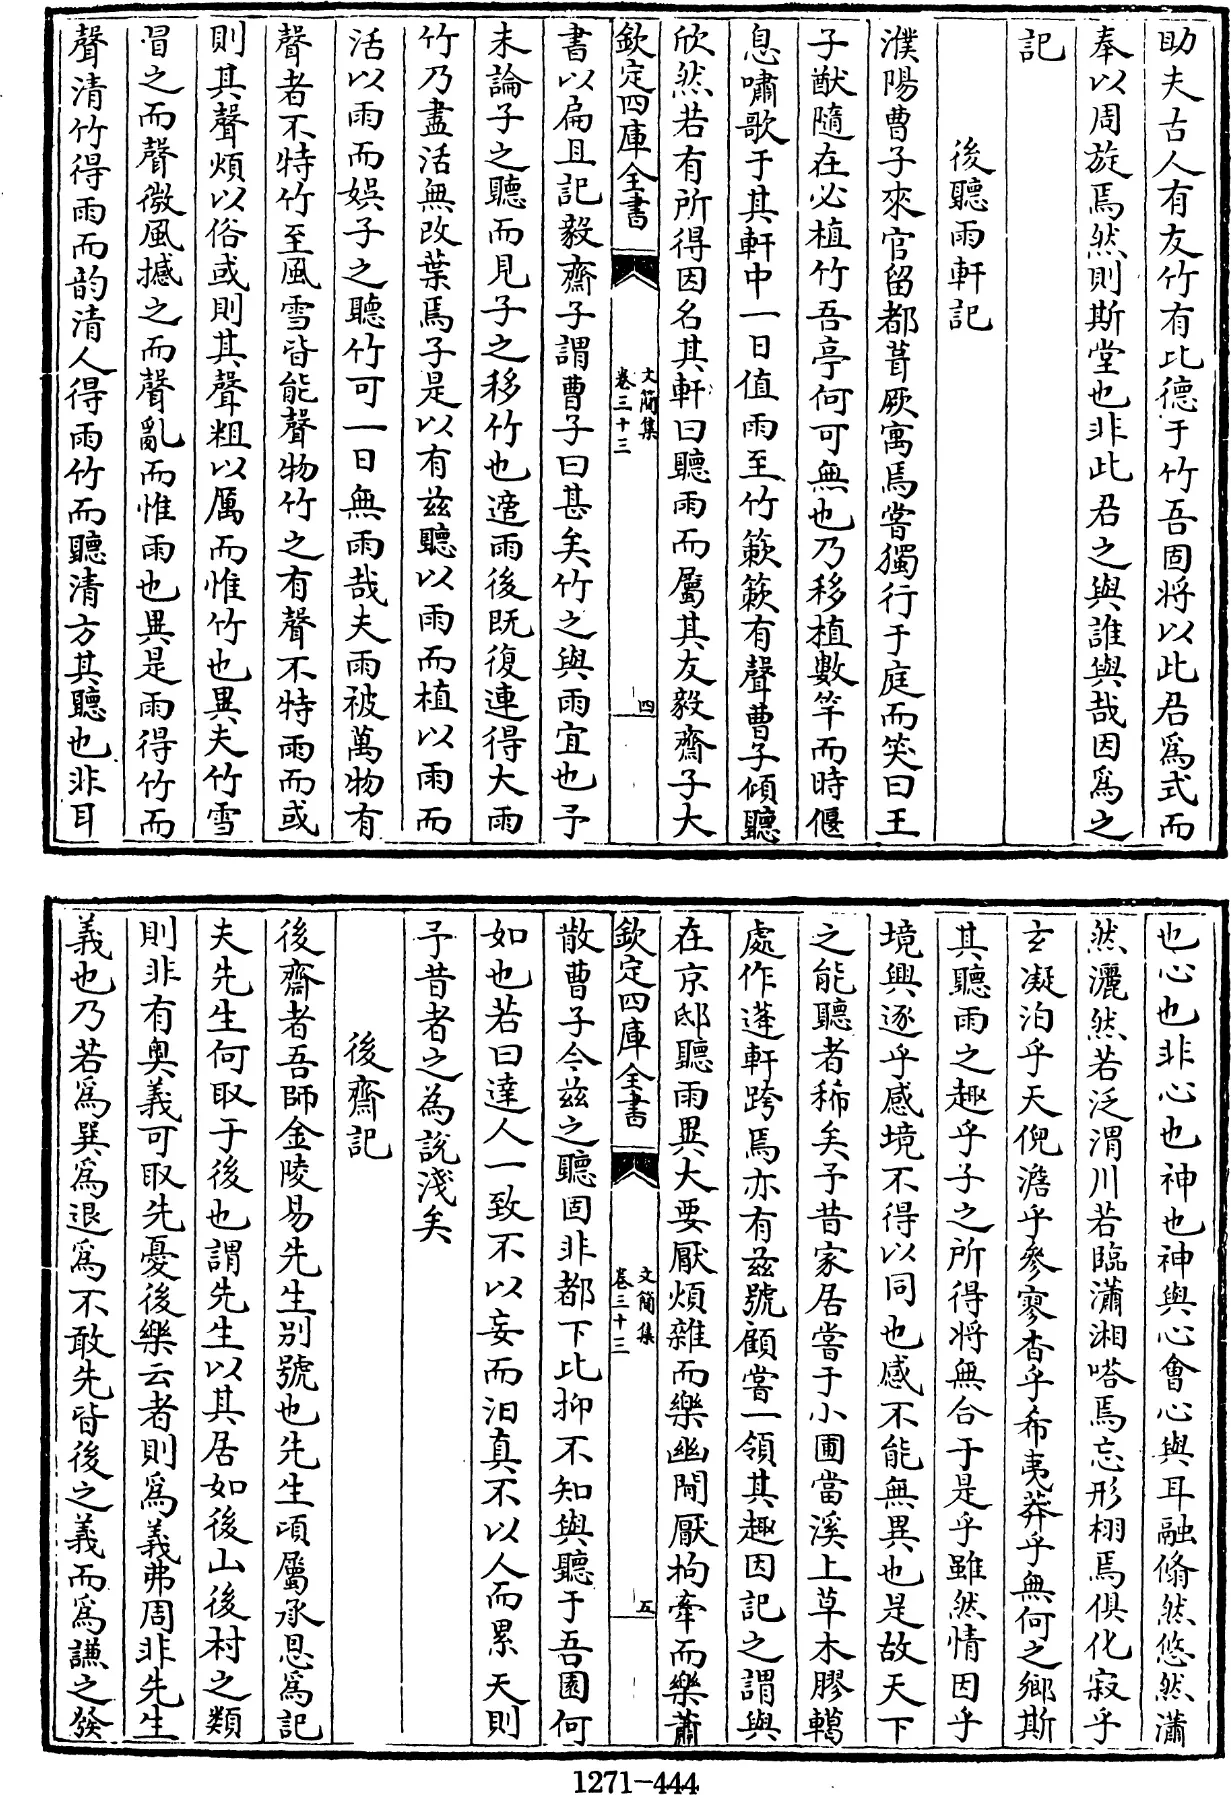 助夫古人有友竹有比德于竹吾固將以此君爲式而
奉以周旋焉然則斯堂也非此君之與誰與哉因爲之
記
後聽雨軒記
濮陽曹子來官留都葺厥寓焉嘗獨行于庭而笑曰王
子猷隨在必植竹吾亭何可無也乃移植數竿而時偃
息嘯歌于其軒中一日值雨至竹簌簌有聲曹子傾聽
欣然若有所得因名其軒曰聽雨而屬其友毅齋子大
欽定四庫全書
文簡集
卷三十三
四
書以扁且記毅齋子謂曹子曰甚矣竹之與雨宜也予
未論子之聽而見子之移竹也適雨後既復連得大雨
竹乃盡活無改葉焉子是以有兹聽以雨而植以雨而
活以雨而娛子之聽竹可一日無雨哉夫雨被萬物有
聲者不特竹至風雪皆能聲物竹之有聲不特雨而或
則其聲煩以俗或則其聲粗以厲而惟竹也異夫竹雪
冒之而聲微風撼之而聲亂而惟雨也異是雨得竹而
聲清竹得雨而韵清人得雨竹而聽清方其聽也非耳
也心也非心也神也神與心會心與耳融翛然悠然瀟
然灑然若泛渭川若臨瀟湘嗒焉忘形栩焉俱化寂乎
玄凝泊乎天倪澹乎參寥杳乎希夷莽乎無何之鄉斯
其聽雨之趣乎子之所得將無合于是乎雖然情因乎
境興逐乎感境不得以同也感不能無異也是故天下
之能聽者稀矣予昔家居嘗于小圃當溪上草木膠轕
處作蓬軒跨焉亦有兹號顧嘗一領其趣因記之謂與
在京邸聽雨異大要厭煩雜而樂幽閒厭拘牽而樂蕭
欽定四庫全書
文簡集
卷三十三
五
散曹子今兹之聽固非都下比抑不知與聽于吾園何
如也若曰達人一致不以妄而汩真不以人而累天則
予昔者之為說淺矣
後齋記
後齋者吾師金陵易先生别號也先生頃屬承恩爲記
夫先生何取于後也謂先生以其居如後山後村之類
則非有奥義可取先憂後樂云者則爲義弗周非先生
義也乃若爲巽爲退爲不敢先皆後之義而爲謙之發
1271-444